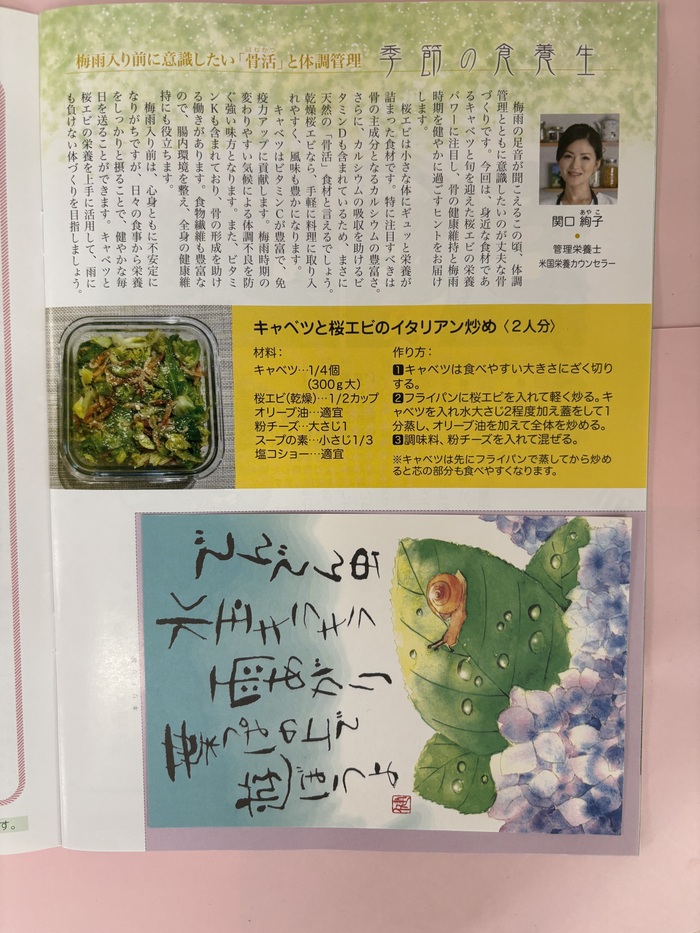 季節の食養生
梅雨入り前に意識したい「骨活」と体調管理
ほねかつ
梅雨の足音が聞こえるこの頃、体調
管理とともに意識したいのが丈夫な骨
づくりです。今回は、身近な食材であ
るキャベツと旬を迎えた桜エビの栄養
パワーに注目し、骨の健康維持と梅雨
時期を健やかに過ごすヒントをお届け
します。
桜エビは小さな体にギュッと栄養が
詰まった食材です。特に注目すべきは
骨の主成分となるカルシウムの豊富さ。
さらに、カルシウムの吸収を助けるビ
タミンDも含まれているため、まさに
天然の「骨活」食材と言えるでしょう。
乾燥桜エビなら、手軽に料理に取り入
れやすく、風味も豊かになります。
キャベツはビタミンCが豊富で、免
疫力アップに貢献します。梅雨時期の
変わりやすい気候による体調不良を防
ぐ強い味方となります。また、ビタミ
ンKも含まれており、骨の形成を助け
る働きがあります。食物繊維も豊富な
ので、腸内環境を整え、全身の健康維
持にも役立ちます。
梅雨入り前は、心身ともに不安定に
なりがちですが、日々の食事から栄養
をしっかりと摂ることで、健やかな毎
日を送ることができます。キャベツと
桜エビの栄養を上手に活用して、雨に
も負けない体づくりを目指しましょう。
あやこ
関口 絢子
管理栄養士
米国栄養カウンセラー
キャベツと桜エビのイタリアン炒め〈2人分〉
材料：
キャベツ…1/4個
(300g大)
桜エビ(乾燥)…1/2カップ
オリーブ油…適宜
粉チーズ…大さじ1
スープの素…小さじ1/3
塩コショー…適宜
作り方：
1キャベツは食べやすい大きさにざく切り
する。
2フライパンに桜エビを入れて軽く炒る。キ
ャベツを入れ水大さじ2程度加え蓋をして1
分蒸し、オリーブ油を加えて全体を炒める。
3調味料、粉チーズを入れて混ぜる。
※キャベツは先にフライパンで蒸してから炒め
ると芯の部分も食べやすくなります。
す。